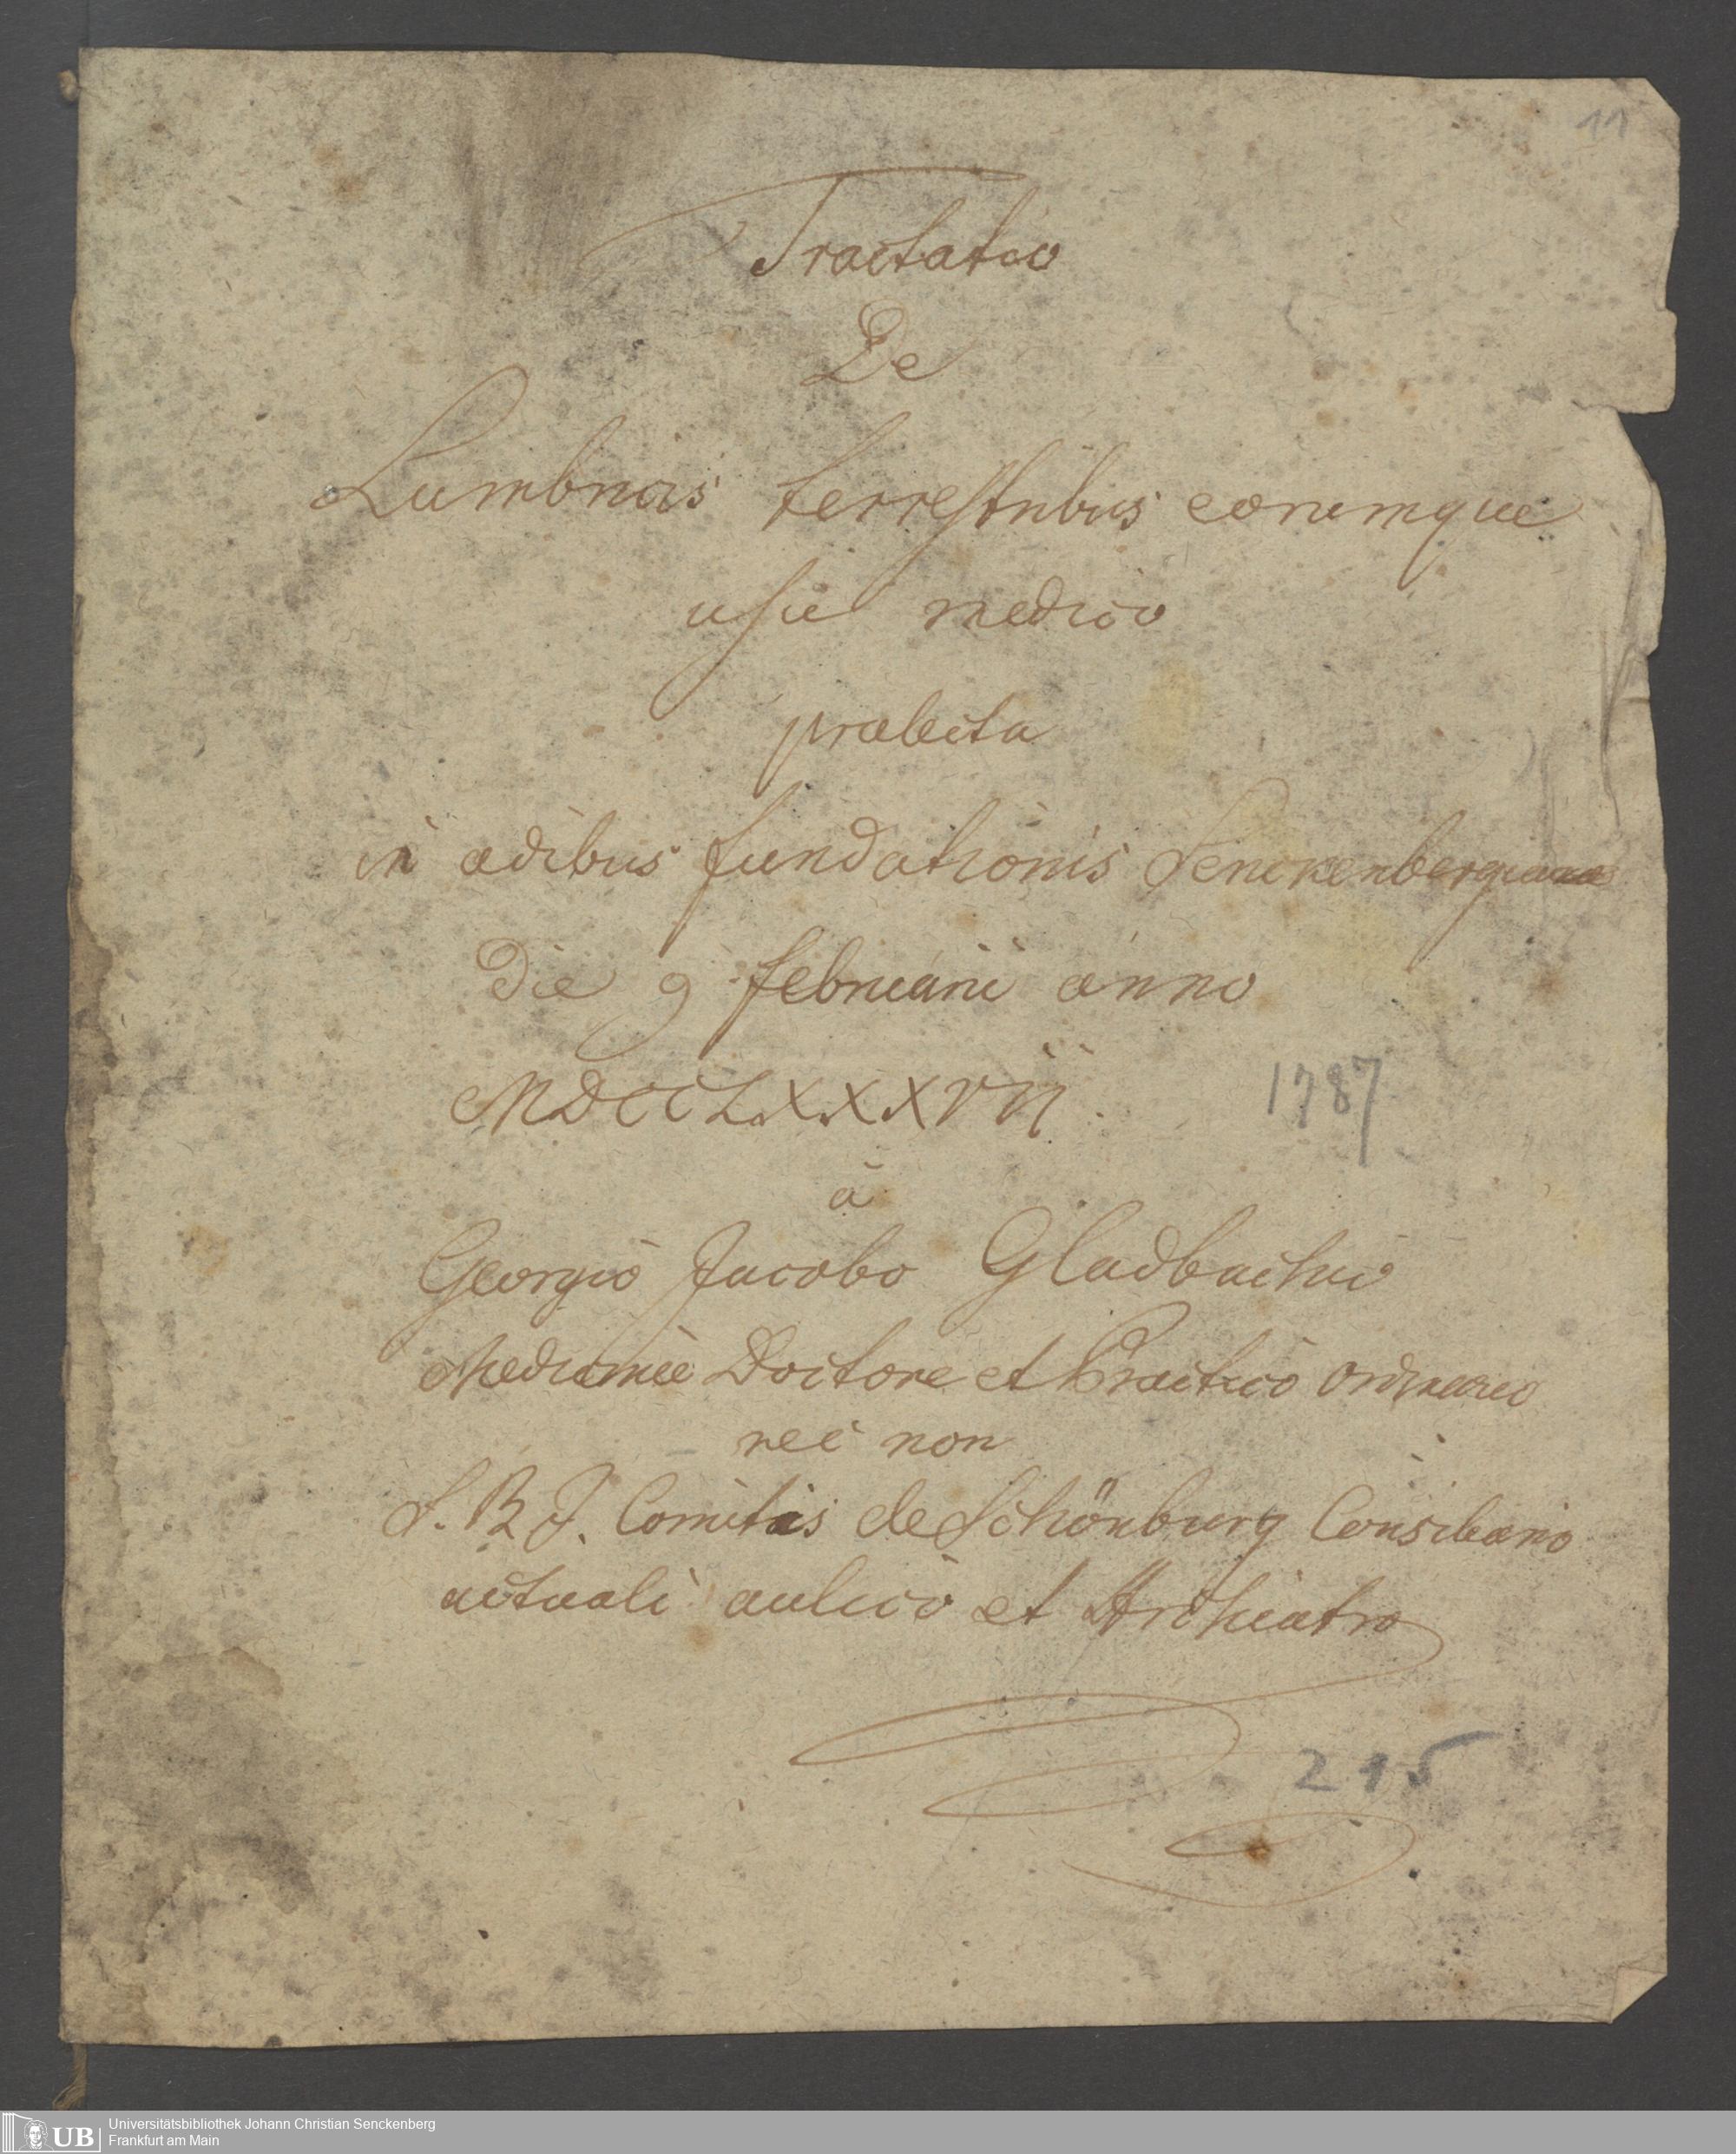 11
Tractatio
De
Lumbricis terrestribus eorumque
usu medico
prælecta
in ædibus fundationis Senckenbergianæ
die 9 februarii anno
MDCCLXXXVII.
1787
a
Georgio Jacobo Gladbachio
Medicinæ Doctore et Practico ordinario
nec non
S. R. J. Comitis de Schönburg Consiliario
actuali aulico et Archiatro
215
UB
Universitätsbibliothek Johann Christian Senckenberg
Frankfurt am Main